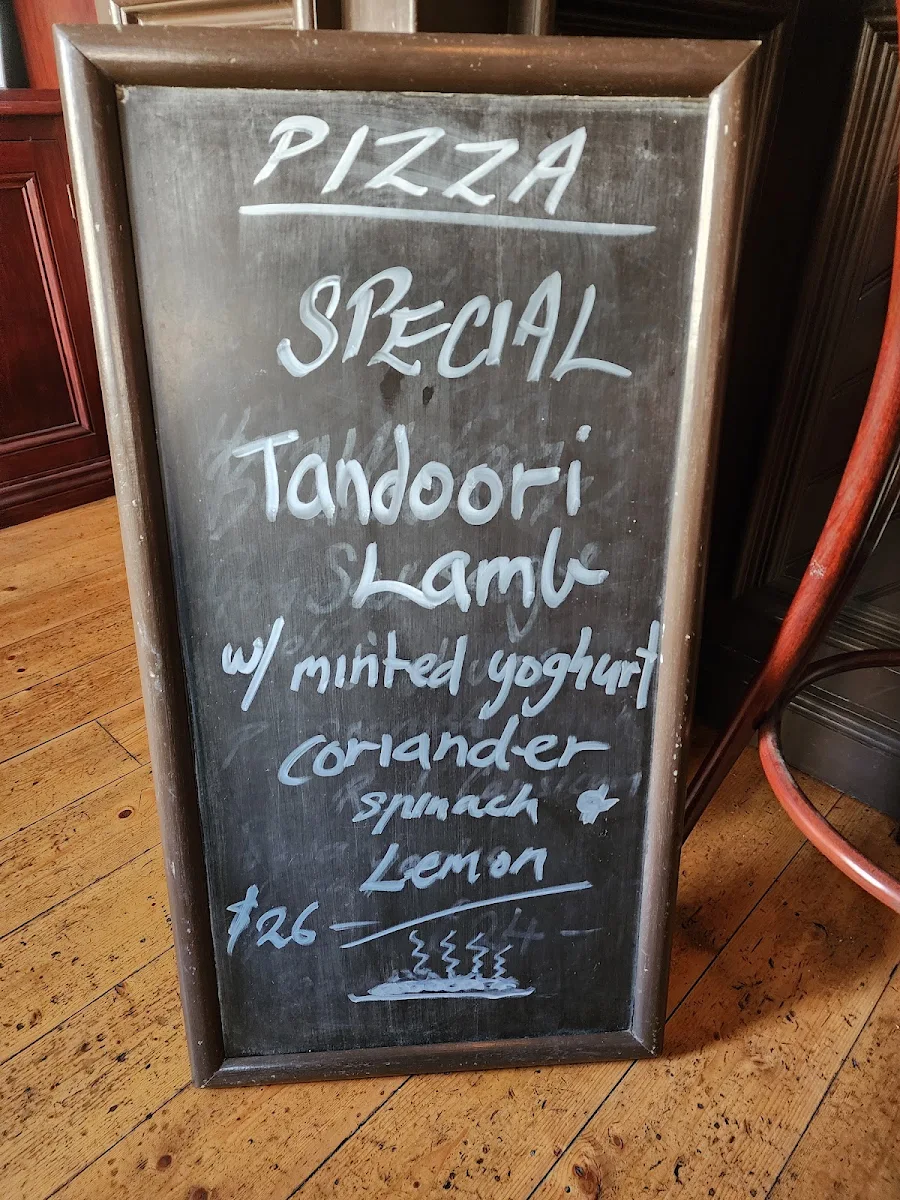 PIZZA
SPECIAL
Tandoori
Lamb
w/ minted yoghurt
coriander
spinach &
Lemon
$26 =